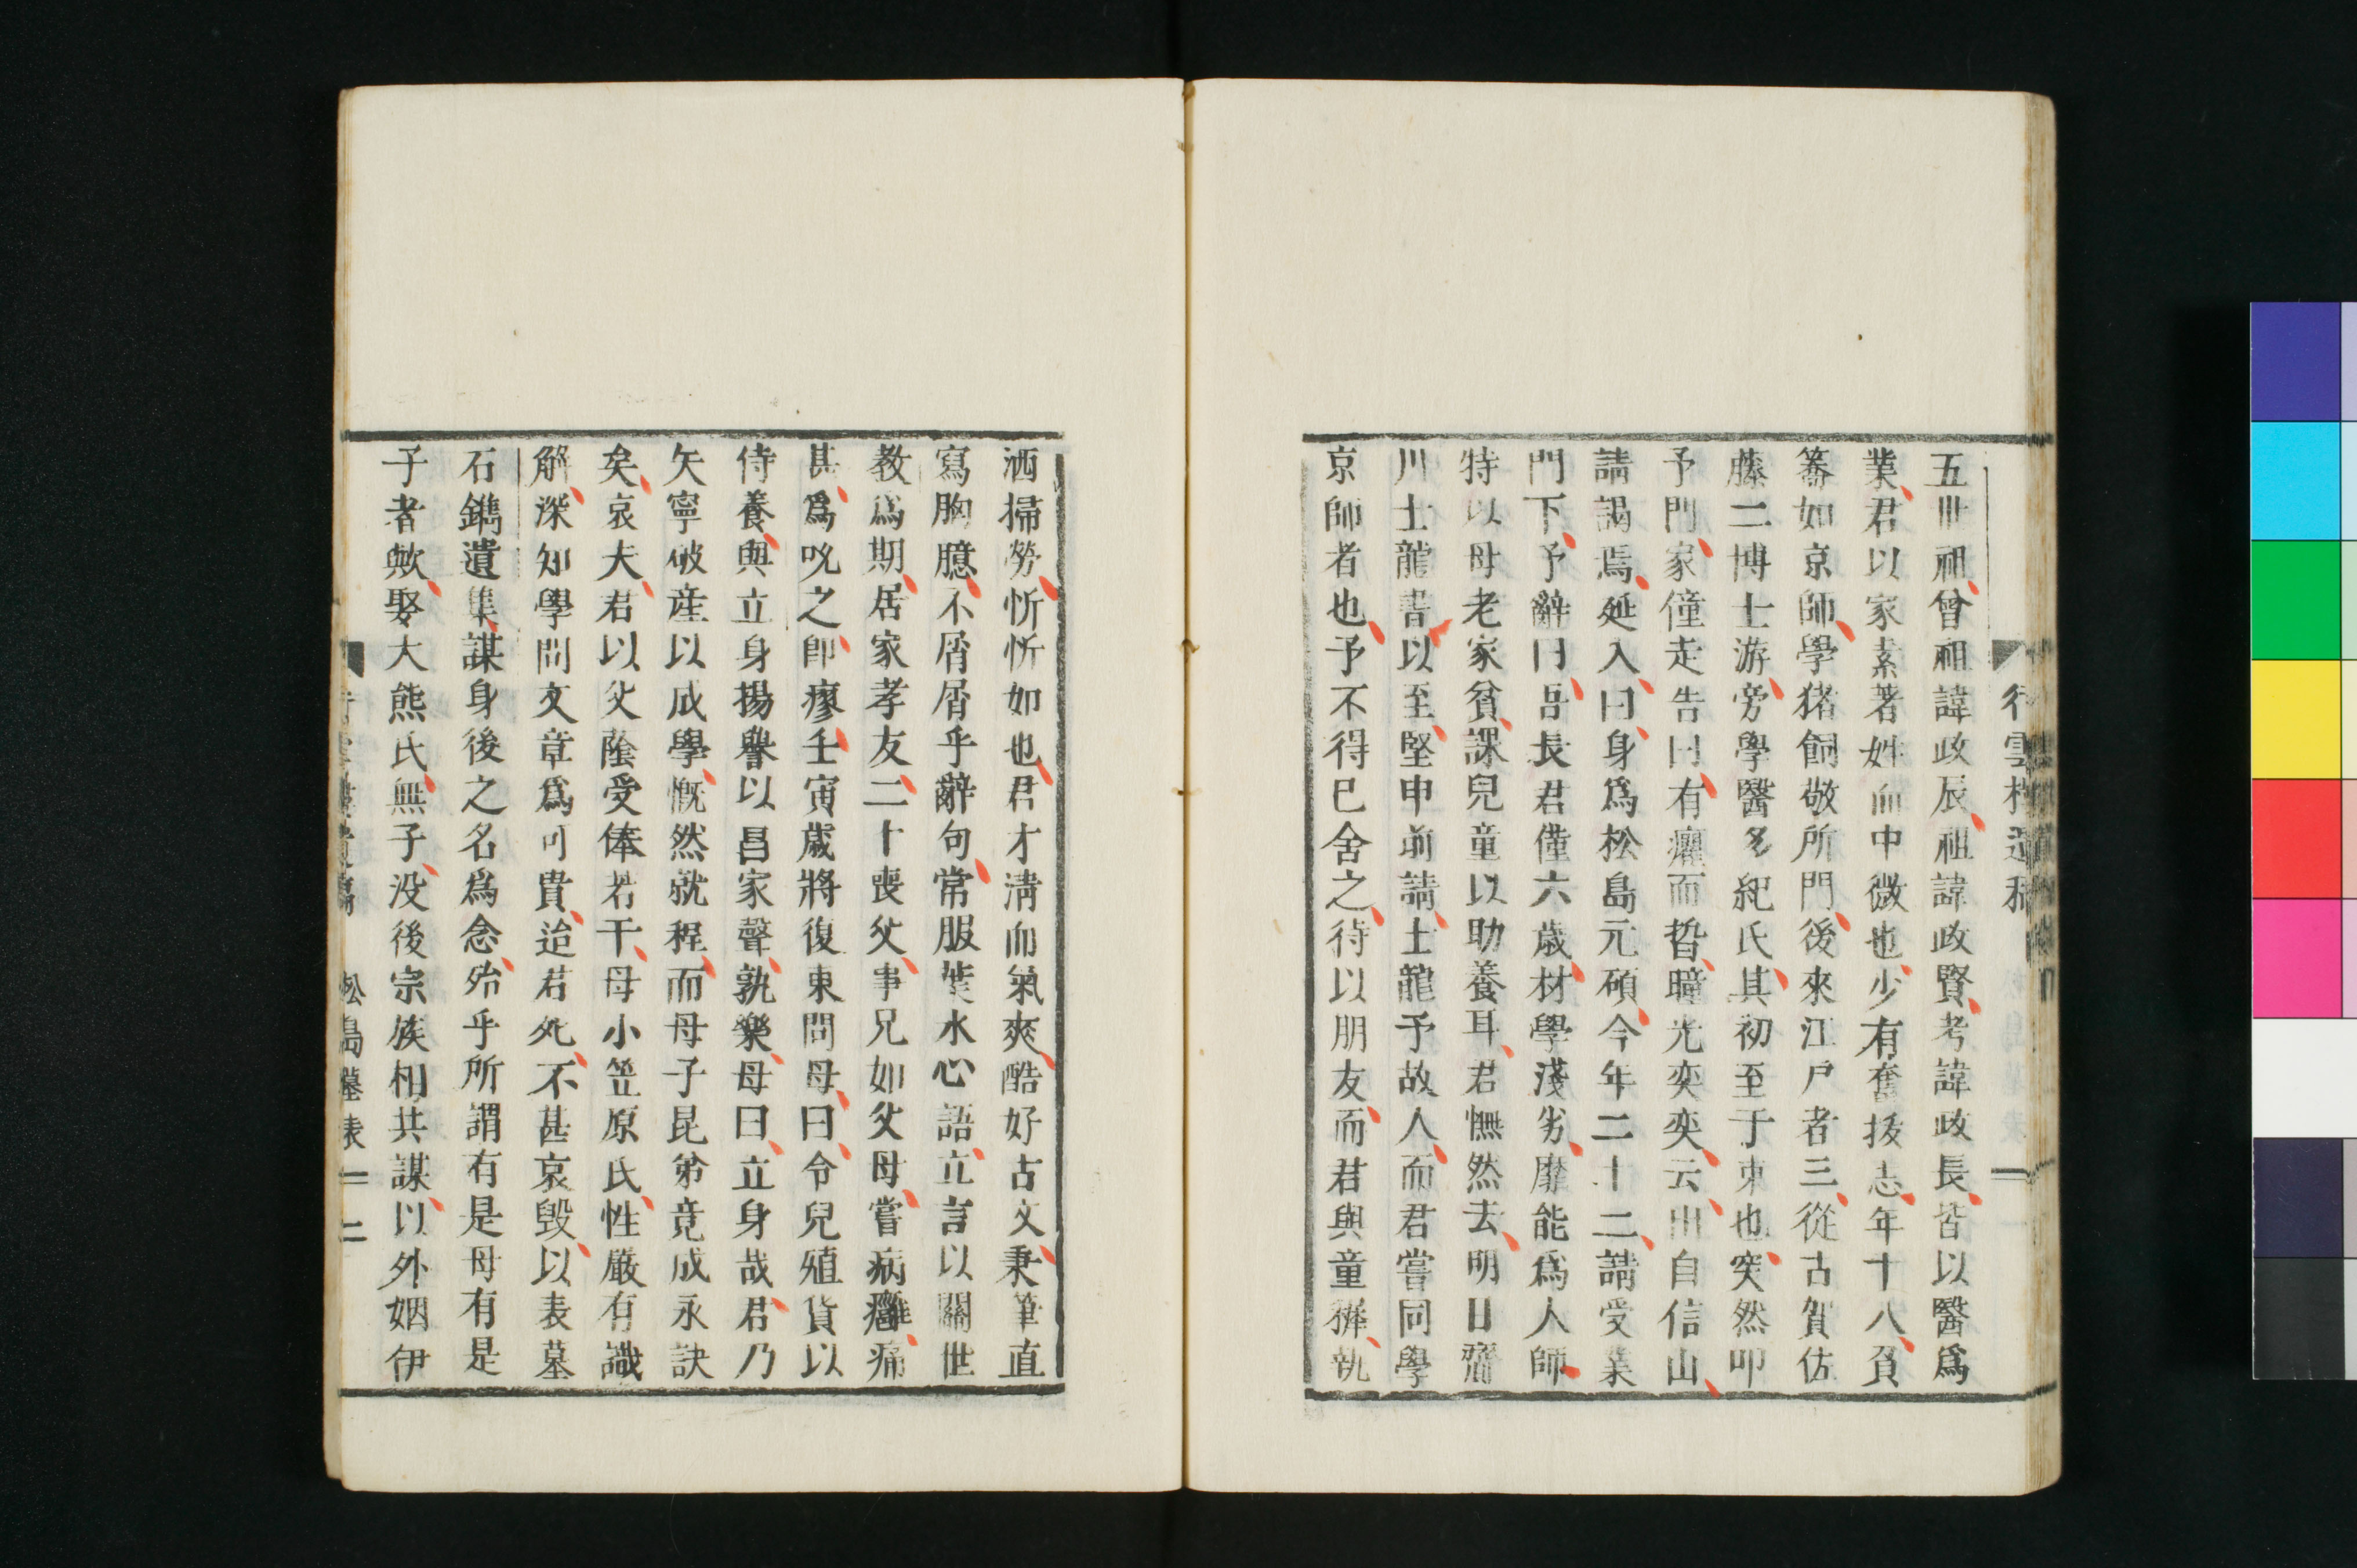 行雲
五世祖曾祖諱政辰祖諱政賢考諱政長皆以醫爲
業君以家素著姓而中微也少有奮拔志年十八負
簦如京師學猪飼敬所門後來江戸者三從古賀佐
藤二博士游旁學醫多紀氏其初至于東也突然叩
予門家僮走告曰有癯而晳瞳光奕奕云出自信山
請謁焉延入曰身爲松島元碩今年二十二請受業
門下予辭曰吾長君僅六歳材學淺劣靡能爲人師
特以母老家貧課兒童以助養耳君憮然去明日齎
川士龍書以至堅申前請士龍予故人而君嘗同學
京師者也予不得已舍之待以朋友而君與童穉執
洒掃勞忻忻如也君才淸而氣爽酷好古文秉筆直
寫胸臆不屑屑乎辭句常服葉水心語立言以關世
教爲期居家孝友二十喪父事兄如父母嘗病癰痛
甚爲吮之卽瘳壬寅歳將復東問母曰令兒殖貨以
侍養與立身揚譽以昌家聲孰樂母曰立身哉君乃
矢寧破産以成學慨然就程而母子昆弟竟成永訣
矣哀夫君以父蔭受俸若干母小笠原氏性嚴有識
解深知學問文章爲可貴迨君死不甚哀毀以表墓
石鐫遺集謀身後之名爲念殆乎所謂有是母有是
子者歟娶大熊氏無子没後宗族相共謀以外姻伊
松島墓表 二